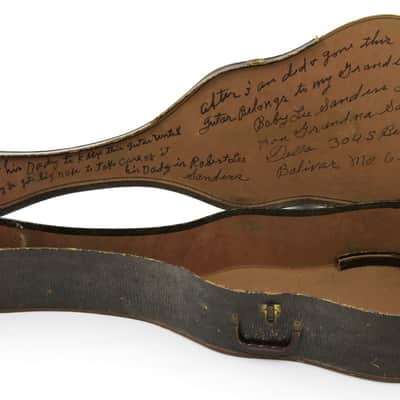 After I am ded + gone this
guter Belongs to my Grands
Baby Lee Sanders
Fron Grandma Sa
Della 304 S Be
Bolivar Mo 6
his Dady to Keep this guter until
get big nofe to Take Care of it
his Dady is Robert Lee
Sanders